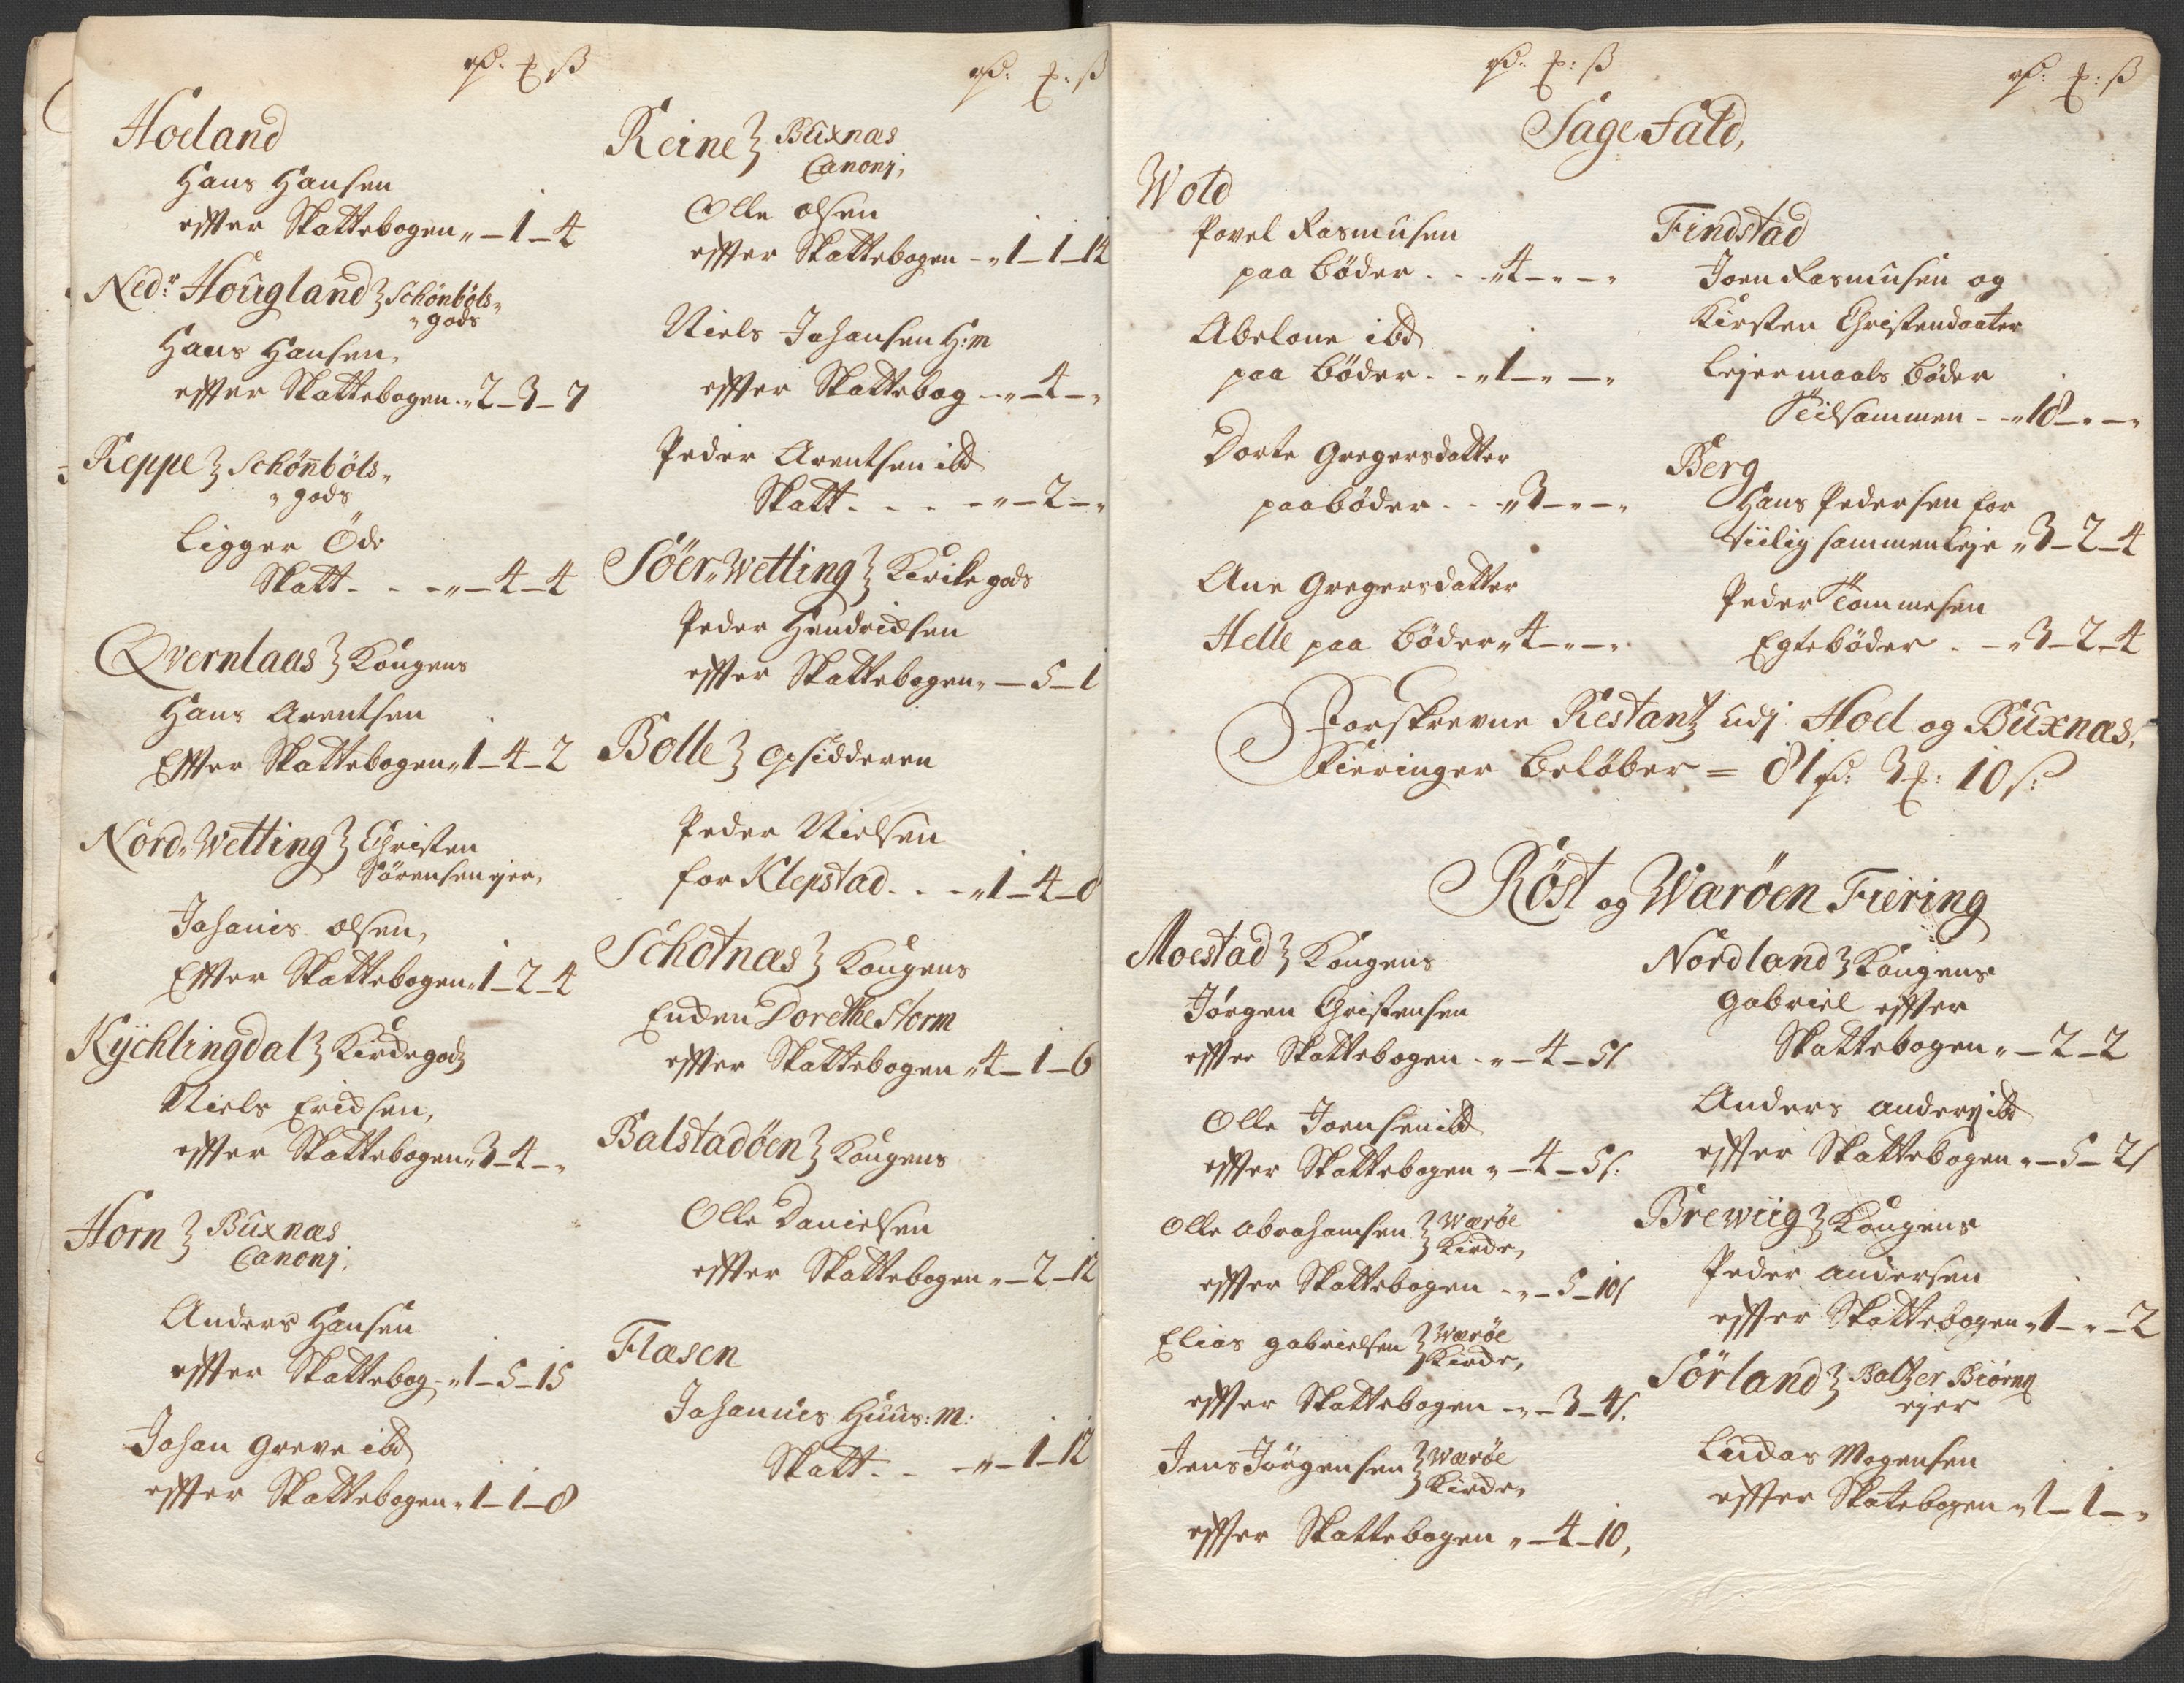 rd. ꝑ ß
Hoeland
Hans Hansen
effter Skattebogen „ – 1 – 4
Nedr Hougland } Schönböls„
„gods
Hans Hansen,
effter Skattebogen „2 – 3 – 7
Reppe } Schönböls„
„gods
Ligger Öde
Skatt - - - „ – 4 – 4
Qvernlaas } Kongens
Hans Arentsen
Effter Skattebogen „1 – 4 – 2
Nord„Wetting } Christen
Sörensen ejer,
Johanis olsen,
Effter Skattebogen „1 – 2 – 4
Kÿchlingdal } Kirchegodz
Niels Erichsen,
effter Skattebogen „3 – 4 – „
Horn } Buxnæs
Canonj,
Anders Hansen
effter Skattebog - „1 – 5 – 15
Johan Greve ibd
effter Skattebogen „1 – 1 – 8
rd: ꝑ: ß
Reine } Buxnæs
Canonj,
Olle olsen
effter Skattebogen - „1 – 1 – 14
Niels Johansen H:m
effter Skattebog - „ – 4 – „
Peder Arentsen ibd
Skatt - - - - „ – 2 – „
Söer„Wetting } Kirche gods
Peder Hendrichsen
effter Skattebogen „ – 5 – 1
Bolle } opsidderen
Peder Nielsen
for Klepstad - - - „1 – 4 – 8
Schotnæs } Kongens
Encken Dorethe Storm
effter Skattebogen „4 – 1 – 6
Balstadöen } Kongens
Olle Danielsen
effter Skattebogen „ – 2 – 12
Flæsen
Johannes Huus: m:
Skatt - - – „ – 1 – 12
rd. ꝑ: ß
Sage Fald,
Wold
Povel Rasmusen
paa böder - - „4 – „ – „
Abelone ibd
paa böder - - „1 – „ – „
Dorte Gregersdatter
paa böder - - „3 – „ – „
Ane Gregersdatter
Helle paa böder „4 – „ – „
rd: ꝑ: ß
Findstad
Joen Rasmusen og
Kirsten Christendaater
Lejermaals böder
Tilsammen - - „18 – „ – „
Berg
Hans Pedersen for
tiilig sammenleje „3 – 2 – 4
Peder Tommesen
Egtebøder - – „3 – 2 – 4
Forskrevne Restantz udj Hoel og Buxnæs,
Fieringer beløber = 81 rd: 3 ꝑ: 10 s:
Röst og Wæröen Fiering
Moestad } Kongens
Jørgen Christensen
effter Skattebogen - „ – 4 – 5s
Olle Joensen ibd
effter Skattebogen „ – 4 – 5s:
Olle Abrahamsen } Wæröe
Kirche,
effter Skattebogen - „ – 5 – 10s
Elias gabrielsen } Wæröe
Kirche,
effter Skattebogen - „ – 3 – 4s:
Jens Jörgensen } Wæröe
Kirche,
effter Skattebogen „ – 4 – 10,
Nordland } Kongens
Gabriel effter
Skattebogen „ – 2 – 2
Anders anders: ibd
effter Skattebogen „ – 5 – 2s
Brewiig } Kongens
Peder andersen
effter Skattebogen „1 – „ – 2
Sörland } Baltzer Biörns
ejer
Ludas Mogensen
effter Skatebogen „1 – 1 – „